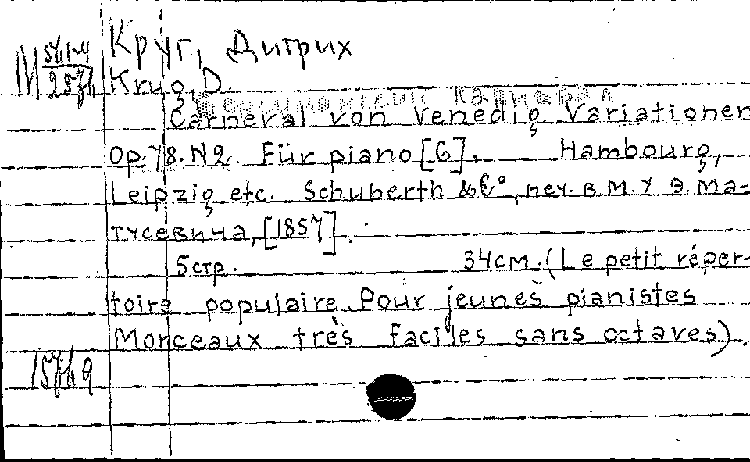 Круг, Дитрих
М 251/4
Krug, D.
Венецианский карнавал
Carneval von Venedig Variationen
Op. 78. N2. Für piano [G]. Hambourg,
Leipzig etc. Schuberth & Cº, печ. в М. у Э. Ма-
тусевича, [1857].
5 стр. 34 см. (Le petit réper-
toire populaire. Pour jeunes pianistes
Morceaux très faciles sans octaves).